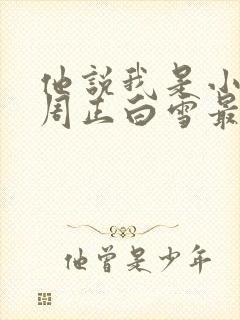 他説我是小
周正白雪最
他曾是少年